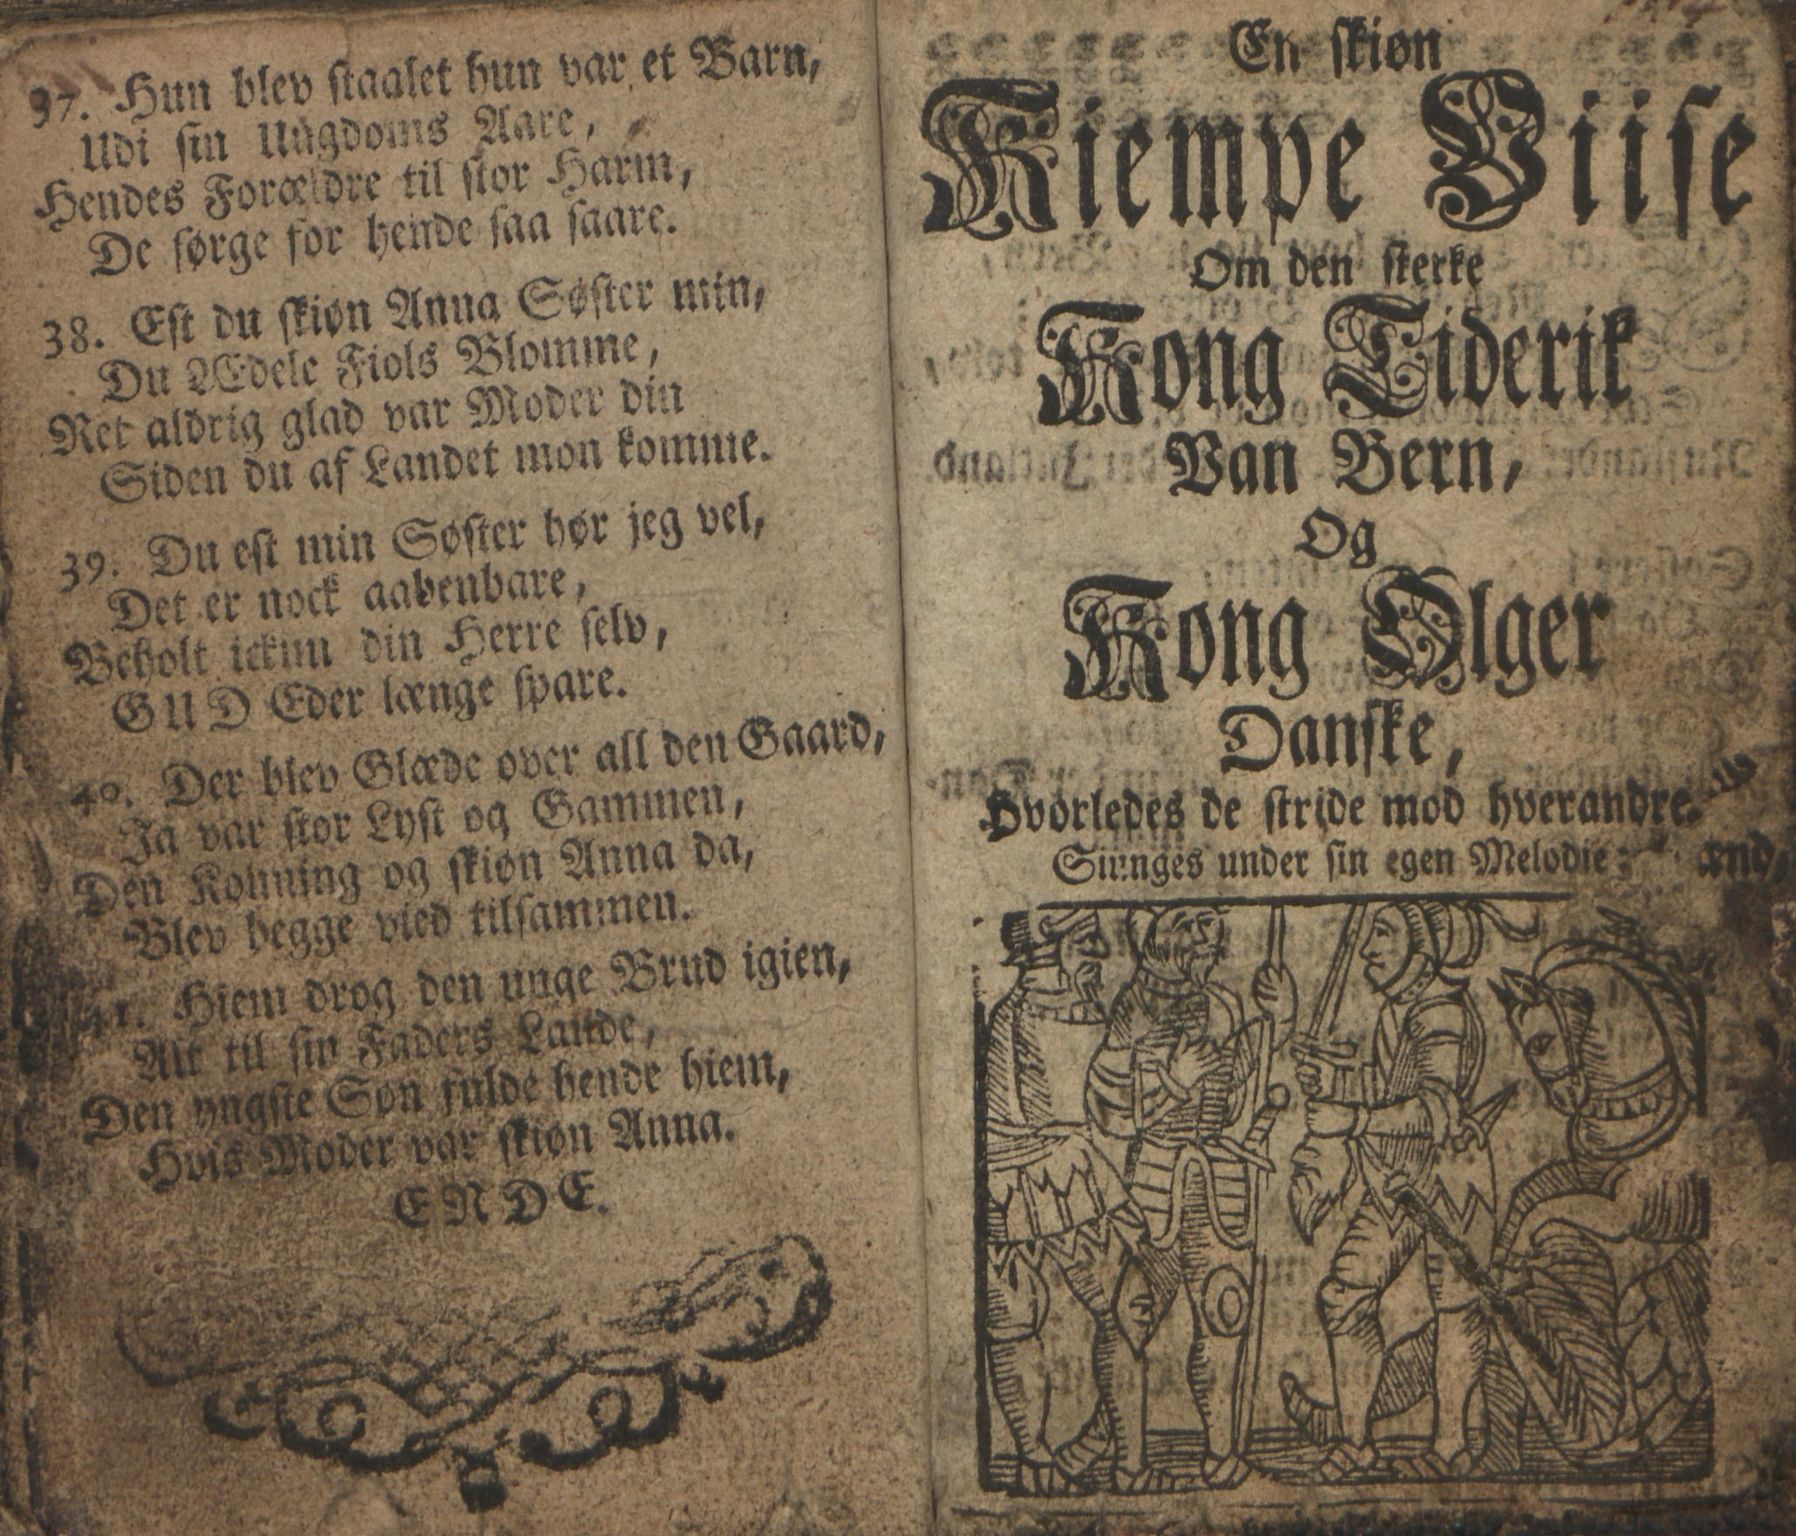 37. Hun blev staalet hun var et Barn,
Udi sin Ungdoms Aare,
Hendes Forældre til stor Harm,
De sørge for hende saa saare.
38. Est du skiøn Anna Søster min,
Du Ædele Fiols Blomme,
Ret aldrig glad var Moder din
Siden du af Landet mon komme.
39. Du est min Søster hør jeg vel,
Det er nock aabenbare,
Beholt ickun din Herre selv,
GUD Eder længe spare.
40. Der blev Glæde over all den Gaard,
Ja var stor Lyst og Gammen,
Den Konning og skiøn Anna da,
Blev begge vied tilsammen.
41. Hiem drog den unge Brud igien,
Alt til sin Faders Lande,
Den yngste Søn fulde hende hiem,
Hvis Moder var skiøn Anna.
ENDE.
En skiøn
Kiempe Viise
Om den sterke
Kong Tiderik
Van Bern,
Og
Kong Olger
Danske,
Hvorledes de stride mod hverandre.
Siunges under sin egen Melodie: